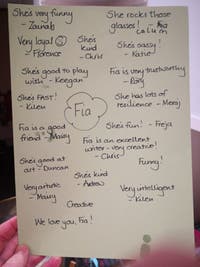 She's very funny
- Zainab
She rocks those
glasses! -
Calum
Very loyal ☹
- Florence
She's
kind
- Chris
She's sassy!
- Katie
She's good to play
with - Keegan
Fia is very trustworthy
She's FAST!
- Kilen
Fia
She has lots of
resilience -
Fia is a good
friend - Maisy
She's fun! - Freja
Fia is an excellent
writer - very creative!
- Chris
She's good at
art - Duncan
Funny!
She's kind
- Andrew
- Maisy
Very intelligent
- Kilen
Creative
We love you, Fia!